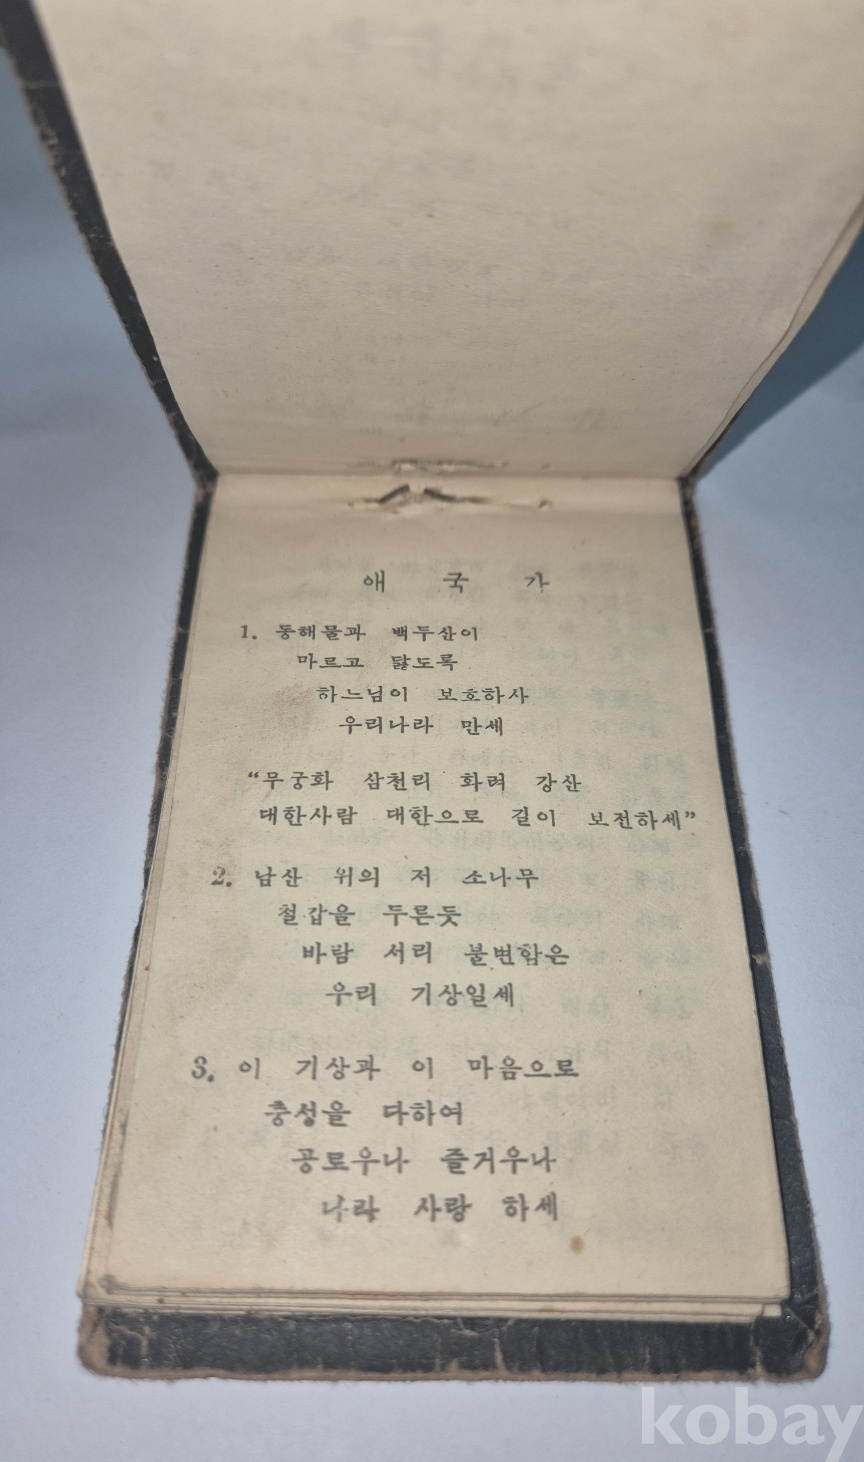 애 국 가
1. 동해물과 백두산이
마르고 닳도록
하느님이 보호하사
우리나라 만세
“무궁화 삼천리 화려 강산
대한사람 대한으로 길이 보전하세”
2. 남산 위의 저 소나무
철갑을 두른듯
바람 서리 불변함은
우리 기상일세
3. 이 기상과 이 마음으로
충성을 다하여
공로우나 즐거우나
나라 사랑 하세
kobay